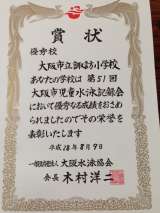 賞状
優秀校
大阪市立加美小学校
あなたの学校は第51回
大阪市児童水泳記録会
において優秀なる成績をおさめ
られましたのでその栄誉を
表彰いたします
平成28年8月9日
一般財団法人 大阪水泳協会
会長 木村洋二